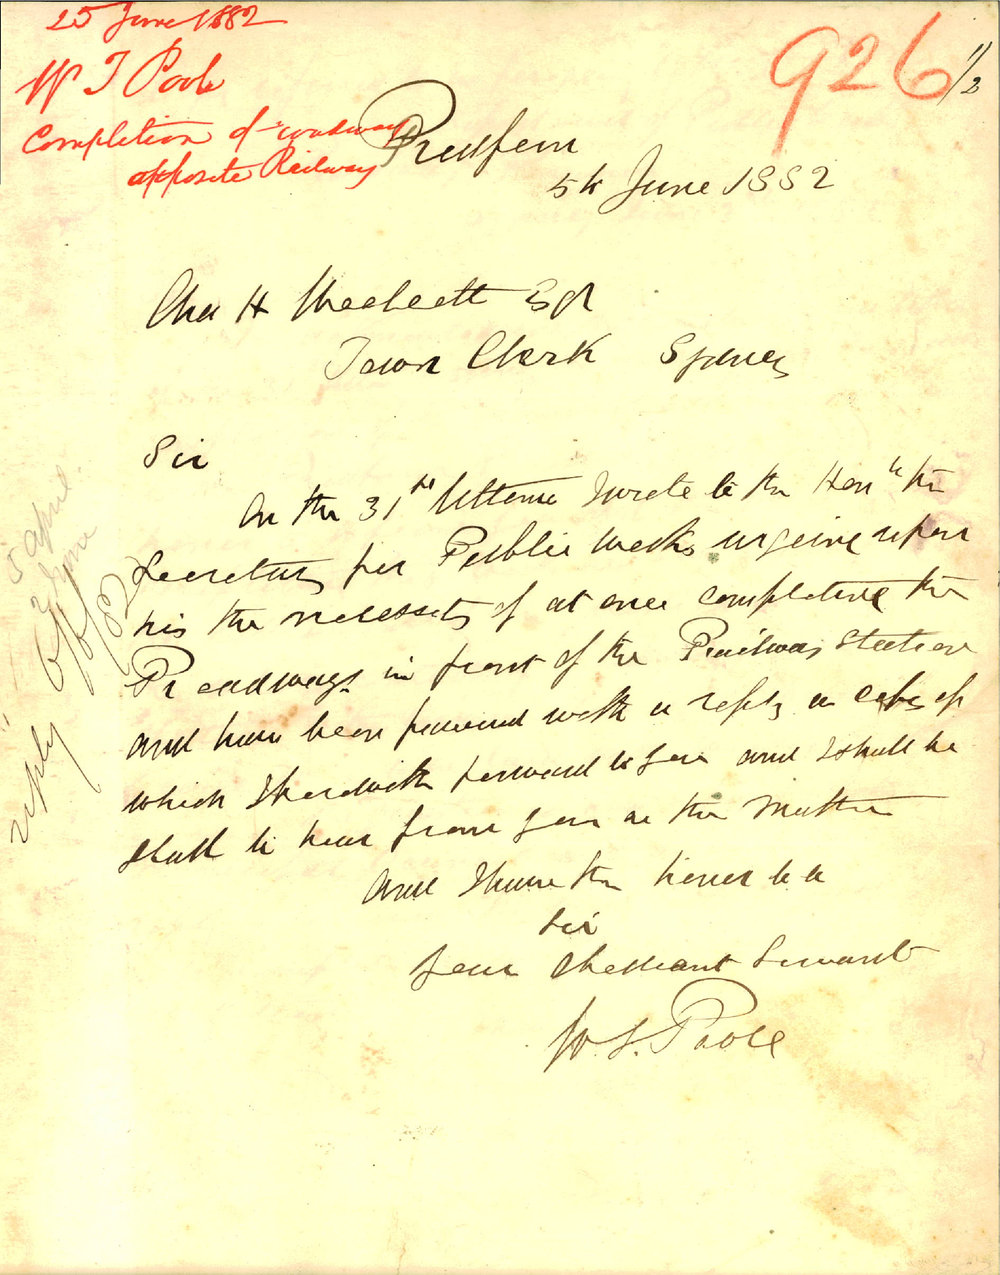 25 June 1882
W T Poole
Completion of roadway
opposite Railway
926 1/2
Redfern
5th June 1882
Chas H Woolcott Esqr
Town Clerk Sydney
Sir
On the 31st Ultimo I wrote to the Honble the
Secretary for Public Works urging upon
his the necessity of at once completing the
Roadways in front of the Railway Station
and have been favoured with a reply a copy of
which I herewith forward to you and I shall be
glad to hear from you in the matter
and I have the honor to be
Sir
Your Obedient Servant
W. T. Poole
reply
5 April
June